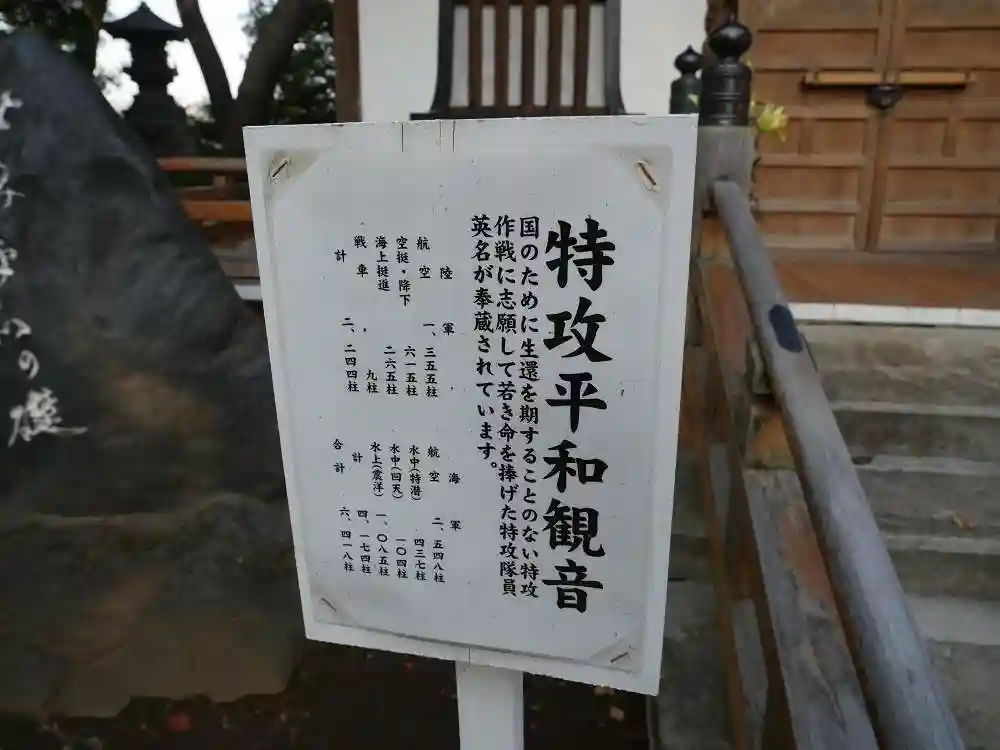 特攻平和観音
国のために生還を期することのない特攻
作戦に志願して若き命を捧げた特攻隊員
英名が奉蔵されています。
陸軍
航空 一、三五五柱
空挺・降下 六一五柱
海上挺進 二六五柱
戦車 九柱
計 二、二四四柱
海軍
航空 二、五四八柱
水中(特潜) 四三七柱
水中(回天) 一〇四柱
水上(震洋) 一、〇八五柱
計 四、一七四柱
合計 六、四一八柱
の礎